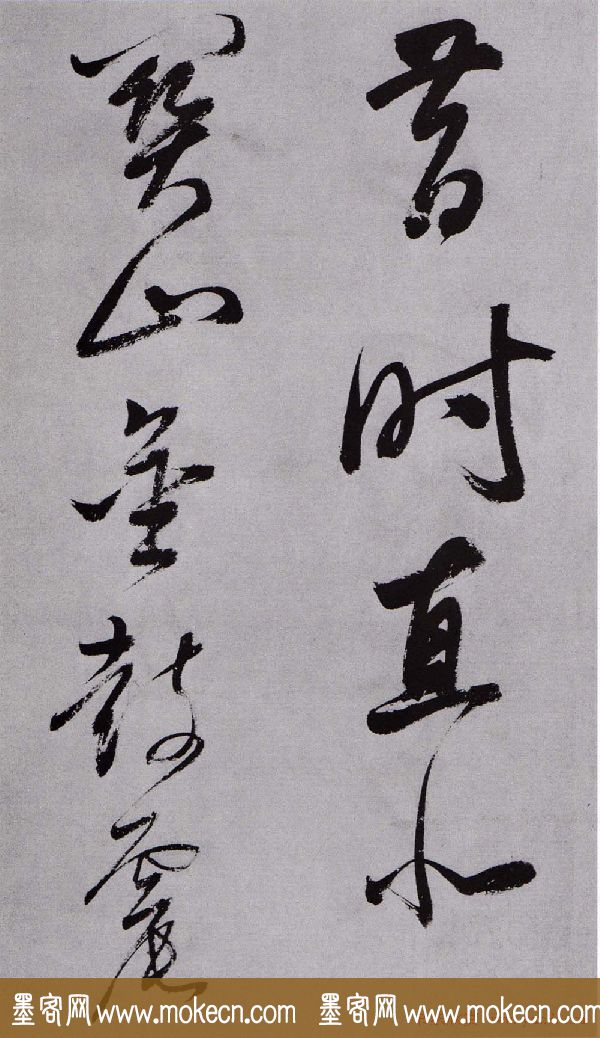 昔时直北
關山金鼓震
墨客网 www.mokecn.com 墨客网 www.mokecn.com